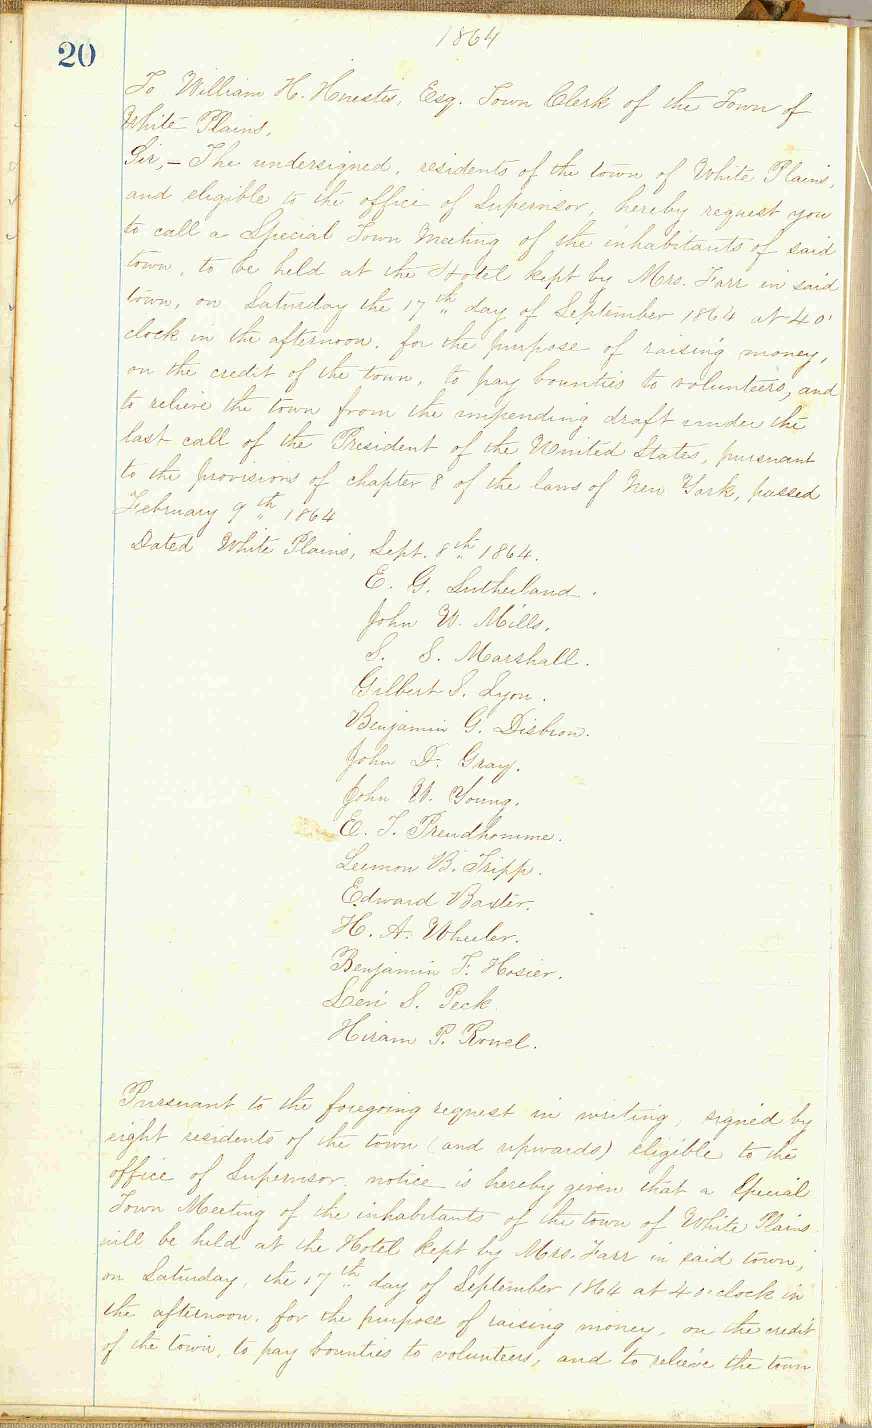 1864
20
To William H. Huestis, Esq. Town Clerk of the Town of
White Plains.
Sir,– The undersigned, residents of the town of White Plains,
and eligible to the office of Supervisor, hereby request you
to call a Special Town Meeting of the inhabitants of said
town, to be held at the Hotel kept by Mrs. Farr in said
town, on Saturday the 17th day of September 1864 at 4 o'
clock in the afternoon, for the purpose of raising money,
on the credit of the town, to pay bounties to volunteers, and
to relieve the town from the impending draft under the
last call of the President of the United States, pursuant
to the provisions of chapter 8 of the laws of New York, passed
February 9th 1864
Dated White Plains, Sept. 8th 1864.
E. G. Sutherland.
John W. Mills.
S. S. Marshall.
Gilbert S. Lyon.
Benjamin G. Disbrow.
John D. Gray.
John W. Young.
E. T. Preudhomme.
Leemon B. Tripp.
Edward Baxter.
H. A. Wheeler.
Benjamin F. Hosier.
Levi S. Peck
Hiram P. Rowel.
Pursuant to the foregoing request in writing, signed by
eight residents of the town (and upwards) eligible to the
office of Supervisor, notice is hereby given that a Special
Town Meeting of the inhabitants of the town of White Plains
will be held at the Hotel kept by Mrs. Farr in said town,
on Saturday, the 17th day of September 1864 at 4 o'clock in
the afternoon, for the purpose of raising money, on the credit
of the town, to pay bounties to volunteers, and to relieve the town